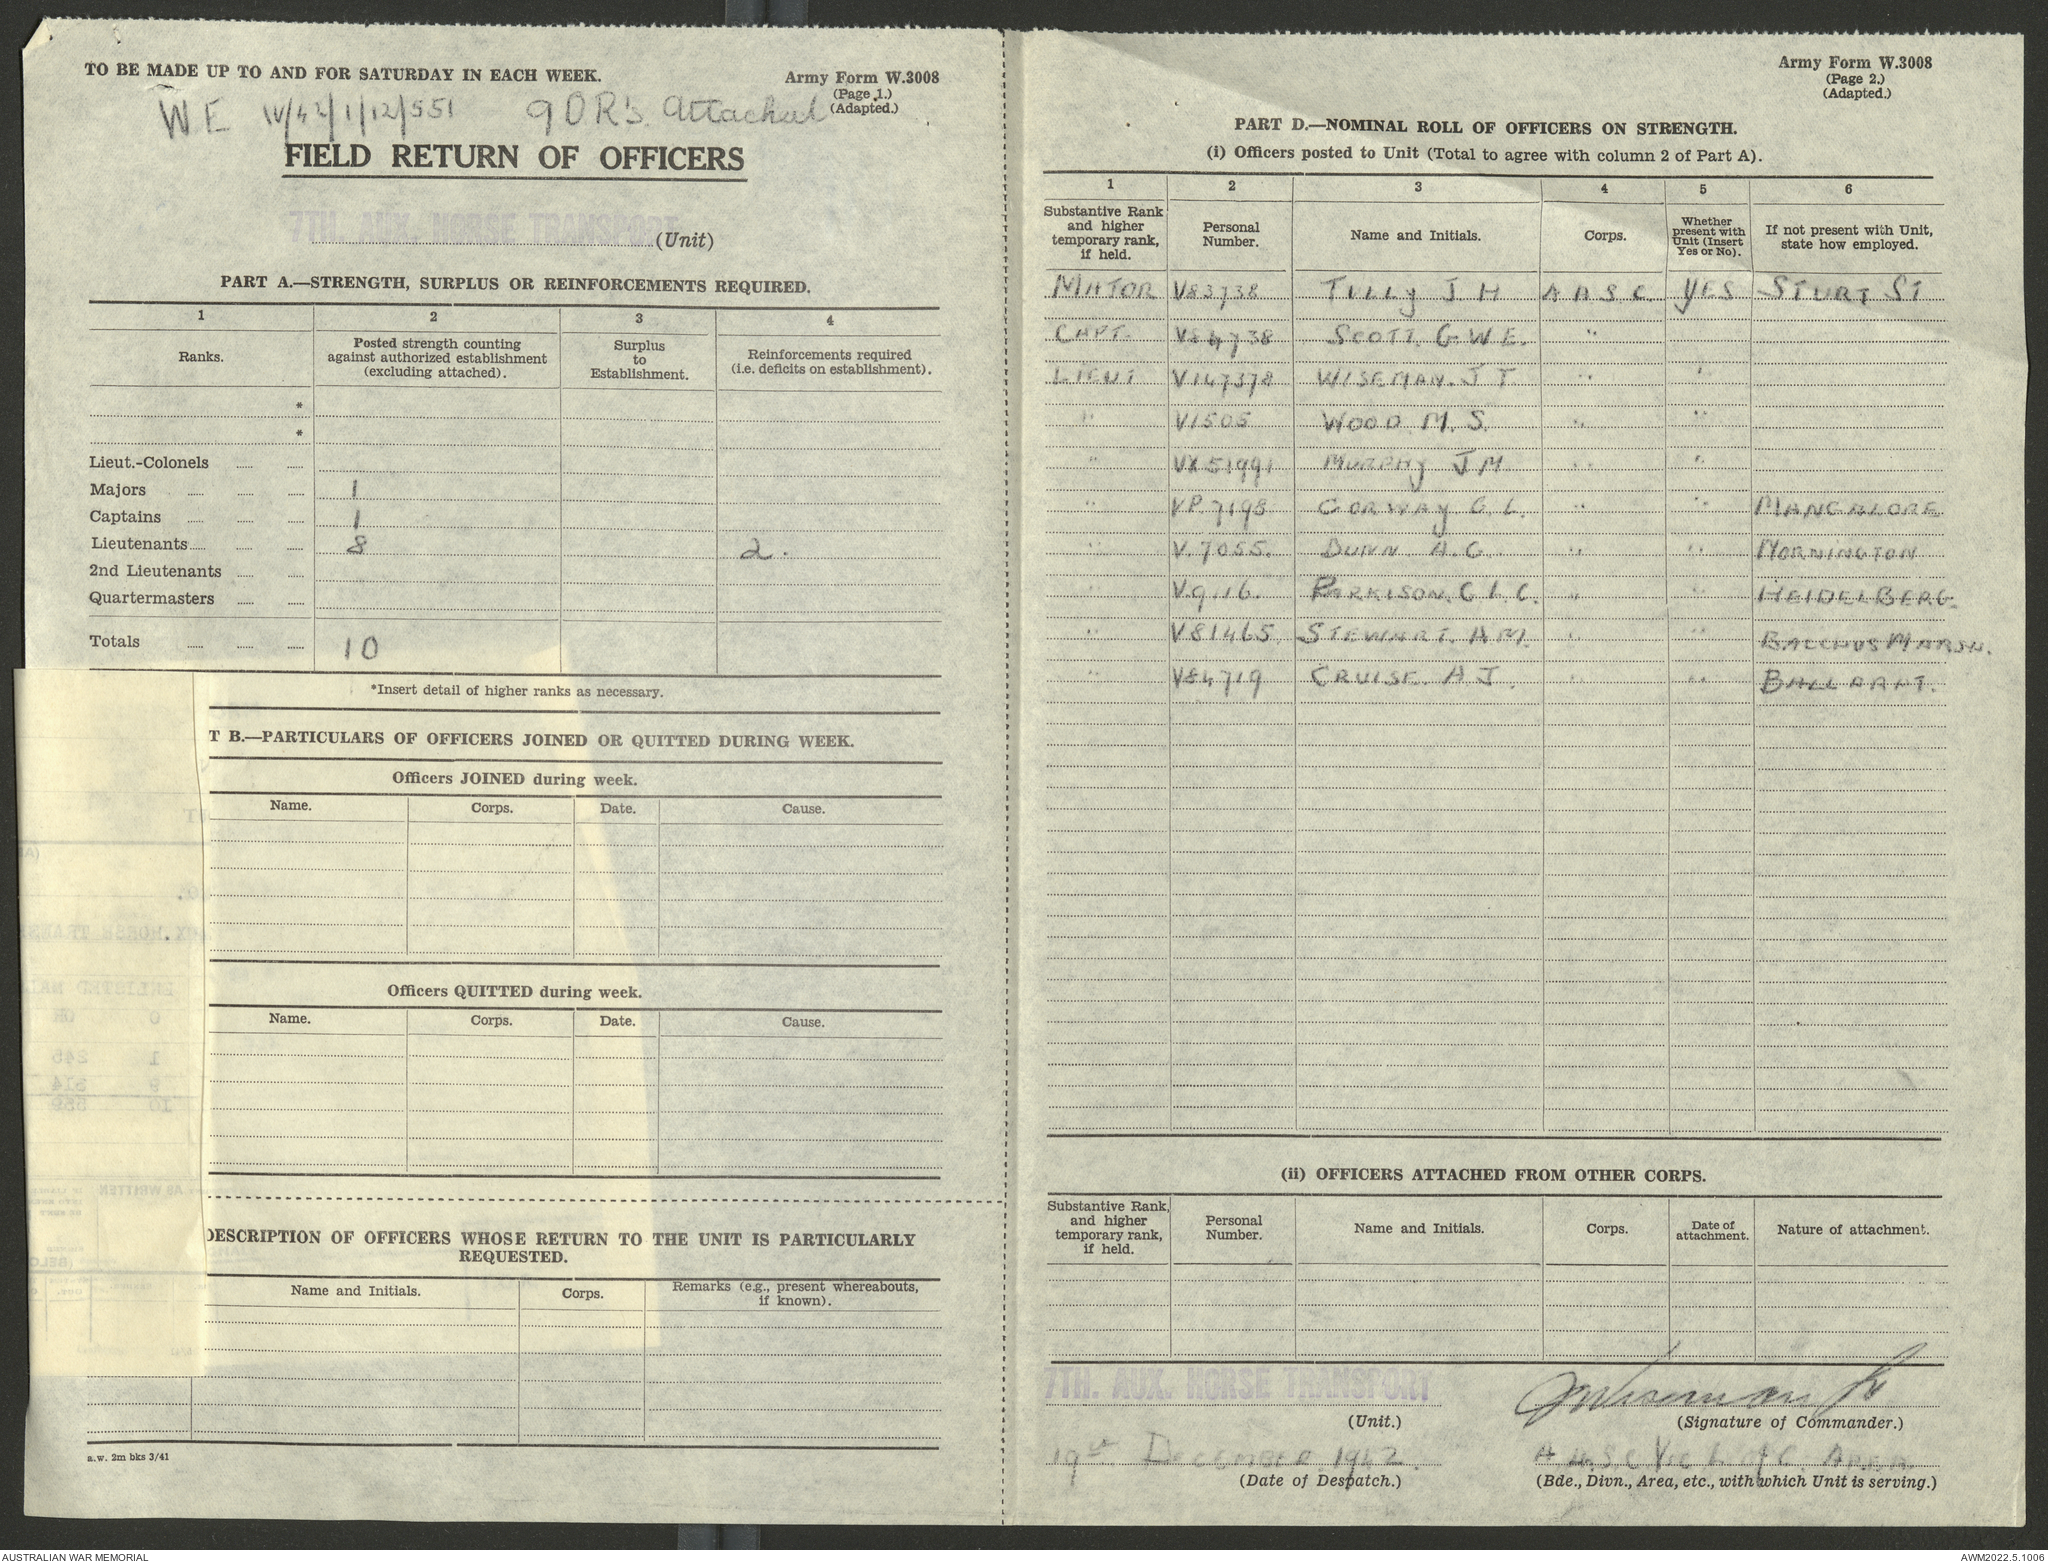 TO BE MADE UP TO AND FOR SATURDAY IN EACH WEEK.
Army Form W.3008
(Page 1.)
(Adapted.)
WE IV/42/1/12/551 9 OR's. Attached
FIELD RETURN OF OFFICERS
7TH. AUX. HORSE TRANSPORT (Unit)
PART A.—STRENGTH, SURPLUS OR REINFORCEMENTS REQUIRED.
1 2 3 4
Ranks.
Posted strength counting against authorized establishment (excluding attached).
Surplus to Establishment.
Reinforcements required (i.e. deficits on establishment).
*
*
Lieut.-Colonels
Majors 1
Captains 1
Lieutenants 8 2.
2nd Lieutenants
Quartermasters
Totals 10
*Insert detail of higher ranks as necessary.
T B.—PARTICULARS OF OFFICERS JOINED OR QUITTED DURING WEEK.
Officers JOINED during week.
Name. Corps. Date. Cause.
Officers QUITTED during week.
Name. Corps. Date. Cause.
DESCRIPTION OF OFFICERS WHOSE RETURN TO THE UNIT IS PARTICULARLY
REQUESTED.
Name and Initials. Corps. Remarks (e.g., present whereabouts, if known).
a.w. 2m bks 3/41
Army Form W.3008
(Page 2.)
(Adapted.)
PART D.—NOMINAL ROLL OF OFFICERS ON STRENGTH.
(i) Officers posted to Unit (Total to agree with column 2 of Part A).
1 2 3 4 5 6
Substantive Rank and higher temporary rank, if held.
Personal Number.
Name and Initials.
Corps.
Whether present with Unit (Insert Yes or No).
If not present with Unit, state how employed.
MAJOR V83738 TULLY J H A A S C YES STURT ST
CAPT. V84738 SCOTT. G. W E. "
LIEUT V147378 WISEMAN. J T. " "
" V1505 WOOD M. S. " "
" VX51991 MURPHY J M " "
" VP.7198 CORWAY G. L. " " MANGALORE
" V.7055. DUNN A. G. " " MORNINGTON
" V.9116. PARKISON. C L. C. " " HEIDELBERG.
" V81465 STEWART. A M. " " BACCHUS MARSH.
" V84719 CRUISE. A J. " " BALLARAT.
(ii) OFFICERS ATTACHED FROM OTHER CORPS.
Substantive Rank, and higher temporary rank, if held.
Personal Number.
Name and Initials.
Corps.
Date of attachment.
Nature of attachment.
7TH. AUX. HORSE TRANSPORT
(Unit.)
JWiseman Lt
(Signature of Commander.)
19th DECEMBER 1942.
(Date of Despatch.)
A A S C Vic L of C. AREA
(Bde., Divn., Area, etc., with which Unit is serving.)
AUSTRALIAN WAR MEMORIAL
AWM2022.5.1006